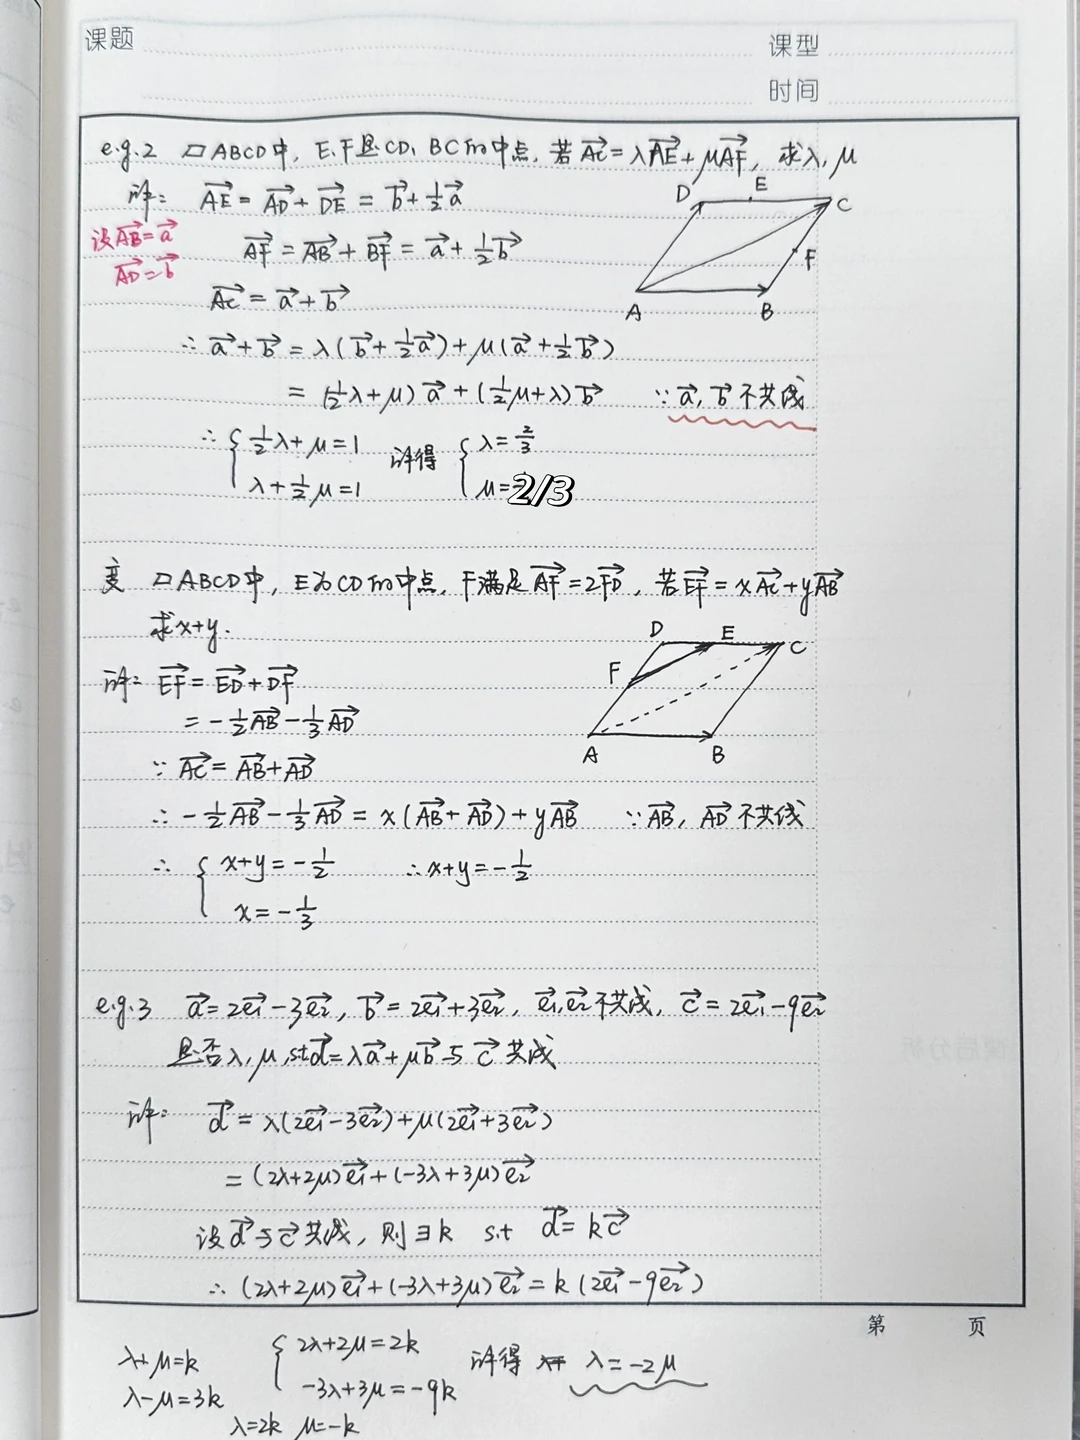 课题
课型
时间
e.g.2 ▱ABCD中, E、F是CD、BC的中点, 若AC→=λAE→+μAF→, 求λ, μ
解: AE→=AD→+DE→=b→+1/2a→
设AB→=a→
AD→=b→
AF→=AB→+BF→=a→+1/2b→
AC→=a→+b→
∴a→+b→=λ(b→+1/2a→)+μ(a→+1/2b→)
=(1/2λ+μ)a→+(1/2μ+λ)b→ ∵a→, b→不共线
∴{1/2λ+μ=1 解得 {λ=2/3
λ+1/2μ=1 μ=2/3
D E C
F
A B
变 ▱ABCD中, E为CD的中点, F满足AF→=2FD→, 若EF→=xAC→+yAB→
求x+y.
D E C
F
A B
解: EF→=ED→+DF→
=-1/2AB→-1/3AD→
∵AC→=AB→+AD→
∴-1/2AB→-1/3AD→=x(AB→+AD→)+yAB→ ∵AB→, AD→不共线
∴{x+y=-1/2 ∴x+y=-1/2
x=-1/3
e.g.3 a→=2e₁→-3e₂→, b→=2e₁→+3e₂→, e₁→,e₂→不共线, c→=2e₁→-9e₂→
是否λ,μ,s.t d→=λa→+μb→与c→共线
解: d→=λ(2e₁→-3e₂→)+μ(2e₁→+3e₂→)
=(2λ+2μ)e₁→+(-3λ+3μ)e₂→
设d→与c→共线, 则∃k s.t d→=kc→
∴(2λ+2μ)e₁→+(-3λ+3μ)e₂→=k(2e₁→-9e₂→)
第 页
λ+μ=k {2λ+2μ=2k 解得 λ=-2μ
λ-μ=3k -3λ+3μ=-9k
λ=2k μ=-k